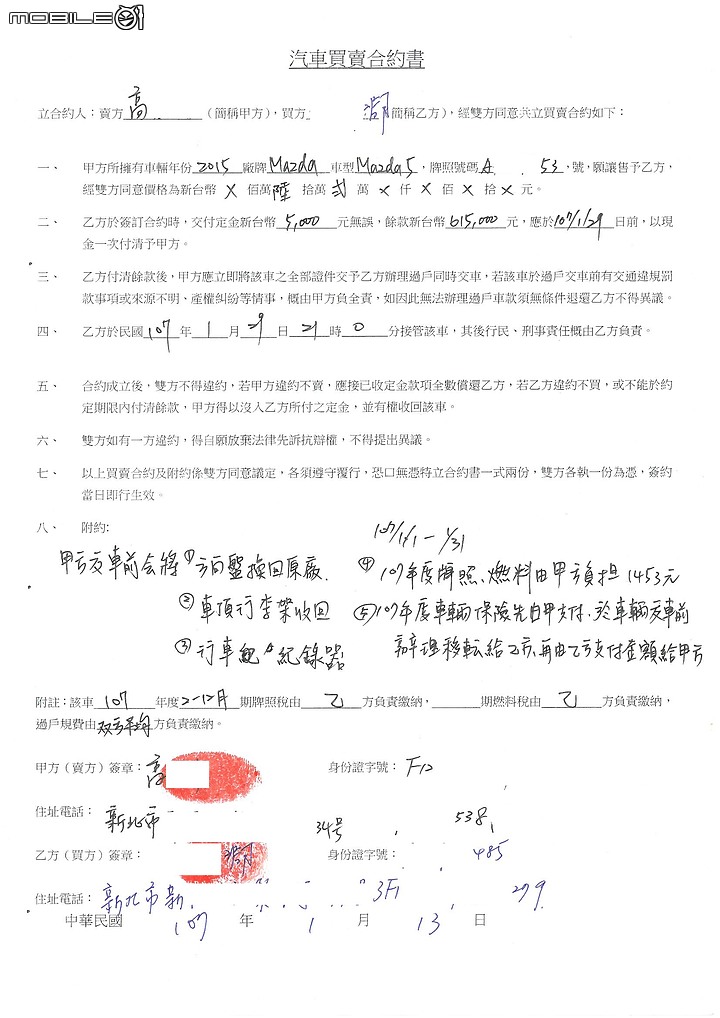 MOBILE01
汽車買賣合約書
立合約人：賣方高（簡稱甲方），買方 簡稱乙方），經雙方同意共立買賣合約如下：
一、 甲方所擁有車輛年份2015廠牌Mazda車型Mazda5，牌照號碼A 53，號，願讓售予乙方，
經雙方同意價格為新台幣 X 佰萬 陸 拾萬 貳 萬 X 仟 X 佰 X 拾 X 元。
二、 乙方於簽訂合約時，交付定金新台幣5,000元無誤，餘款新台幣615,000元，應於107/1/29日前，以現
金一次付清予甲方。
三、 乙方付清餘款後，甲方應立即將該車之全部證件交予乙方辦理過戶同時交車，若該車於過戶交車前有交通違規罰
款事項或來源不明、產權糾紛等情事，概由甲方負全責，如因此無法辦理過戶車款須無條件退還乙方不得異議。
四、 乙方於民國107年1月29日21時0分接管該車，其後行民、刑事責任概由乙方負責。
五、 合約成立後，雙方不得違約，若甲方違約不賣，應接已收定金款項全數償還乙方，若乙方違約不買，或不能於約
定期限內付清餘款，甲方得以沒入乙方所付之定金，並有權收回該車。
六、 雙方如有一方違約，得自願放棄法律先訴抗辯權，不得提出異議。
七、 以上買賣合約及附約係雙方同意議定，各須遵守覆行，恐口無憑特立合約書一式兩份，雙方各執一份為憑，簽約
當日即行生效。
八、 附約:
107/1/1－1/31
甲方交車前会將①方向盤換回原廠 ④107年度牌照、燃料由甲方負担1453元
②車頂行李架收回 ⑤107年度車輛保險先由甲支付、於車輛交車前
③行車紀錄器 辦理移転給乙方,再由乙方支付金額給甲方
附註：該車107年度2-12月期牌照稅由乙方負責繳納，期燃料稅由乙方負責繳納，
過戶規費由双方平均方負責繳納。
甲方（賣方）簽章：高 身份證字號：F12
住址電話：新北市 34号 538
乙方（買方）簽章： 身份證字號：485
住址電話：新北市新 3F1 299
中華民國 107 年 1 月 13 日